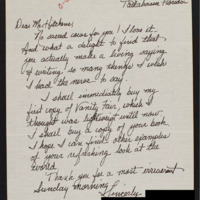 Tallahassee, Florida
Dear Mr. Hitchens:
No sacred cows for you! I love it.
And what a delight to find that
you actually make a living saying
& writing so many things I wish
I had the nerve to say.
I shall immediately buy my
first copy of Vanity Fair, which I
thought was lightweight until now.
I shall buy a copy of your book.
I hope I can find other examples
of your refreshing look at the
world.
Thank you for a most irreverent
Sunday morning!
Sincerely,